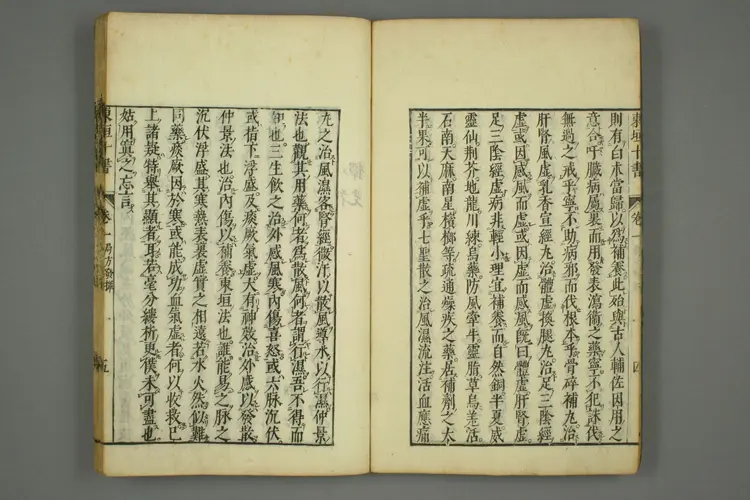 東垣十書 卷一 四
則有白朮當歸以爲補養此殆與古人輔佐因用之
意合乎臟病屬裏而用發表瀉衛之藥寧不犯誅伐
無過之戒乎寧不助病邪而伐根本乎骨碎補丸治
肝腎風虛乳香宣經丸治體虛換腿丸治足三陰經
虛或因感風而虛或因虛而感風既曰體虛肝腎虛
足三陰經虛病非輕小理宜補養而自然銅半夏威
靈仙荊芥地龍川練烏藥防風牽牛靈脂草烏羌活
石南天麻南星檳榔等疏通燥疾之藥居補劑之太
半果可以補虛乎七聖散之治風濕流注活血應痛
丸之治風濕客腎經微汗以散風導水以行濕仲景
法也觀其用藥何者爲散風何者謂行濕吾不得而
知也三生飲之治外感風寒內傷喜怒或六脉沉伏
或指下浮盛及痰厥氣虛大有神效治外感以發散
仲景法也治內傷以補養東垣法也誰能易之脉之
沉伏浮盛其寒熱表裏虛實之相遠若水火然似難
同藥痰厥因於寒或能成功血氣虛者何以收救已
上諸疑特舉其顯者耳若毫分縷析更僕未可盡也
姑用寘之忘言
東垣十書 卷一 局方發揮 五